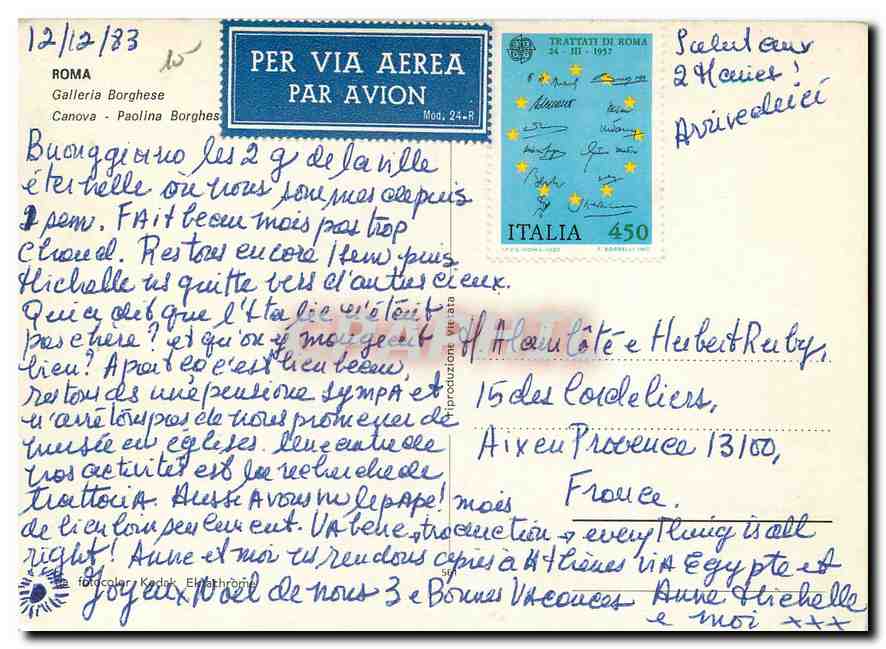 12/12/83
15
ROMA
Galleria Borghese
Canova - Paolina Borghese
PER VIA AEREA
PAR AVION
Mod. 24-R
TRATTATI DI ROMA
24 - III - 1957
ITALIA 450
Salut aux
2 Maries!
Arrivederci
Buonggiorno les 2 g de la ville
éternelle où nous sommes depuis
1 sem. FAit beau mais pas trop
chaud. Restons encore 1 sem puis
Michelle ns quitte vers d'autres cieux.
Qui a dit que l'Italie n'était
pas chère? et qu'on y mangeait
bien? A part ça c'est bien beau,
restons ds une pensione sympA et
n'arrêtons pas de nous promener de
musée en églises. Une autre de
nos activités est la recherche de
trattoriA. Aussi Avons vu le pApe! mais
de bien loin seulement. VA bene → traduction → everything is all
right! Anne et moi ns rendons après à Athènes viA Egypte et
Joyeux Noël de nous 3 e Bonnes VAcances Anne Michelle
e moi xxx
riproduzione vietata
M. Alain Côté e Hubert Ruby,
15 des Cordeliers,
Aix en Provence 13100,
France.
fotocolor Kodak Ektachrome
561